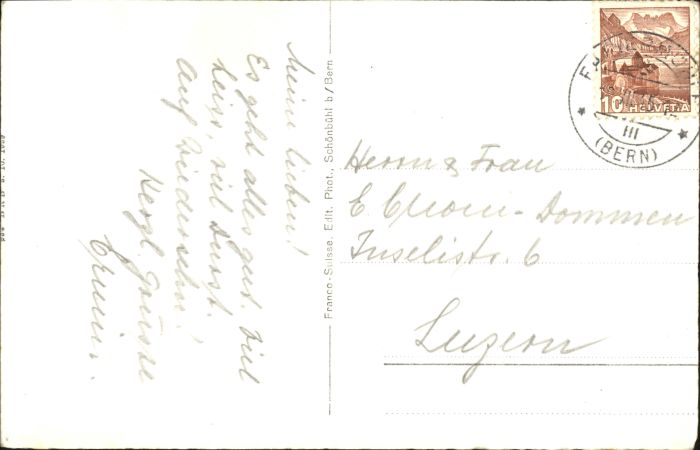 Meine Lieben!
Es geht alles gut. Viel
heiss, viel Durst.
Auf Wiedersehn!
Herzl. Grüsse
Erwin.
Franco-Suisse. Edit. Phot., Schönbühl b/Bern
Herrn & Frau
E -Dommen
Inselistr. 6
Luzern
10 HELVETIA
III
(BERN)